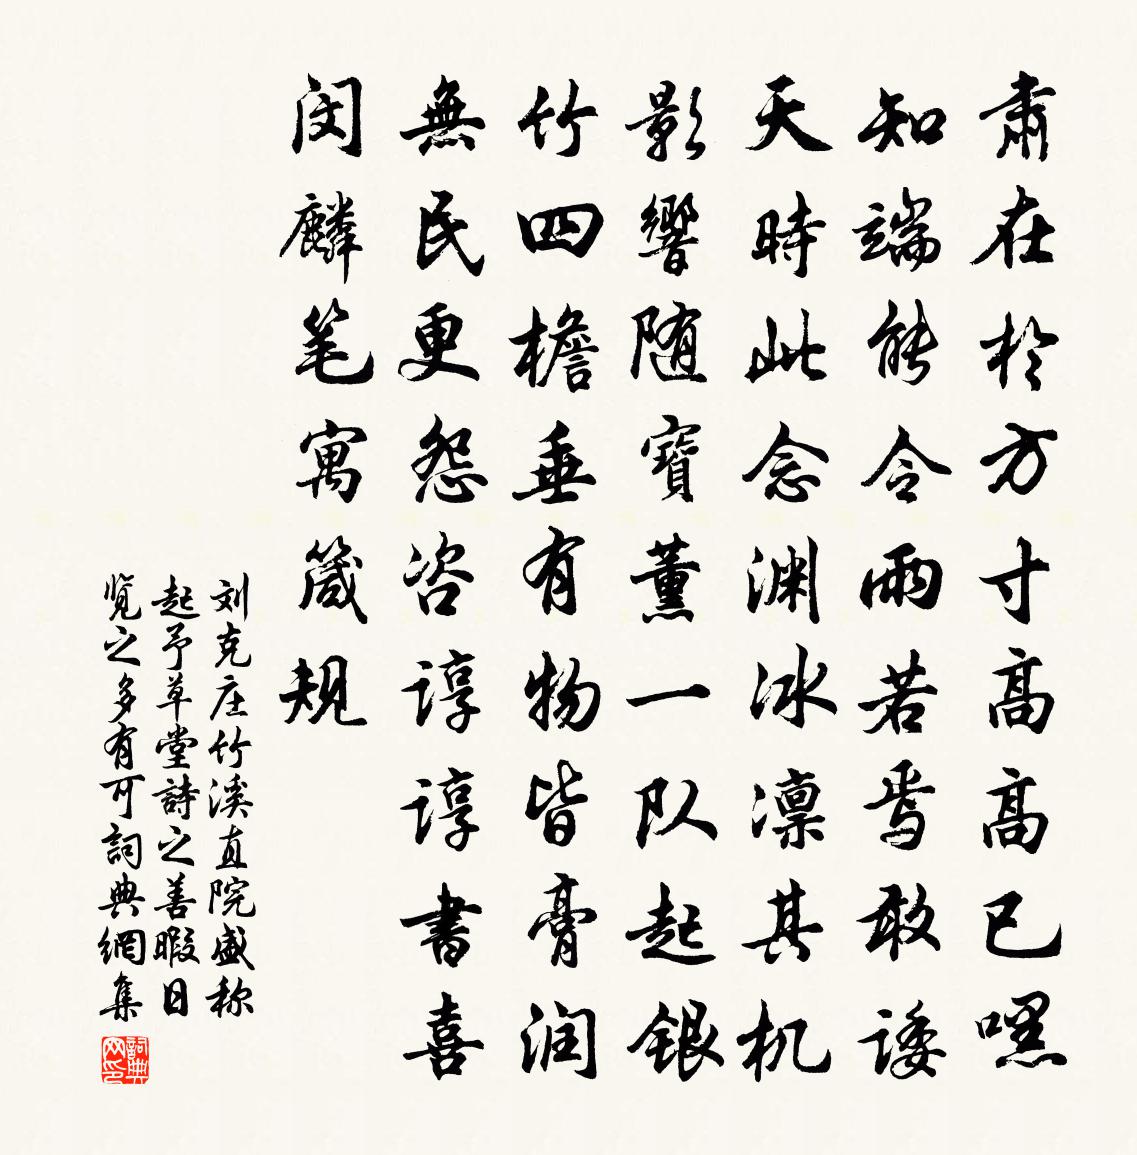 肃在於方寸高高已嘿
知端能令雨若焉敢诿
天時此念渊冰凛其机
影響随寶薰一队起銀
竹四檐垂有物皆膏润
無民更怨咨谆谆書喜
闵麟笔寓箴规
刘克庄竹溪直院盛称
起予草堂詩之善暇日
览之多有可詞典網集
詞典网印